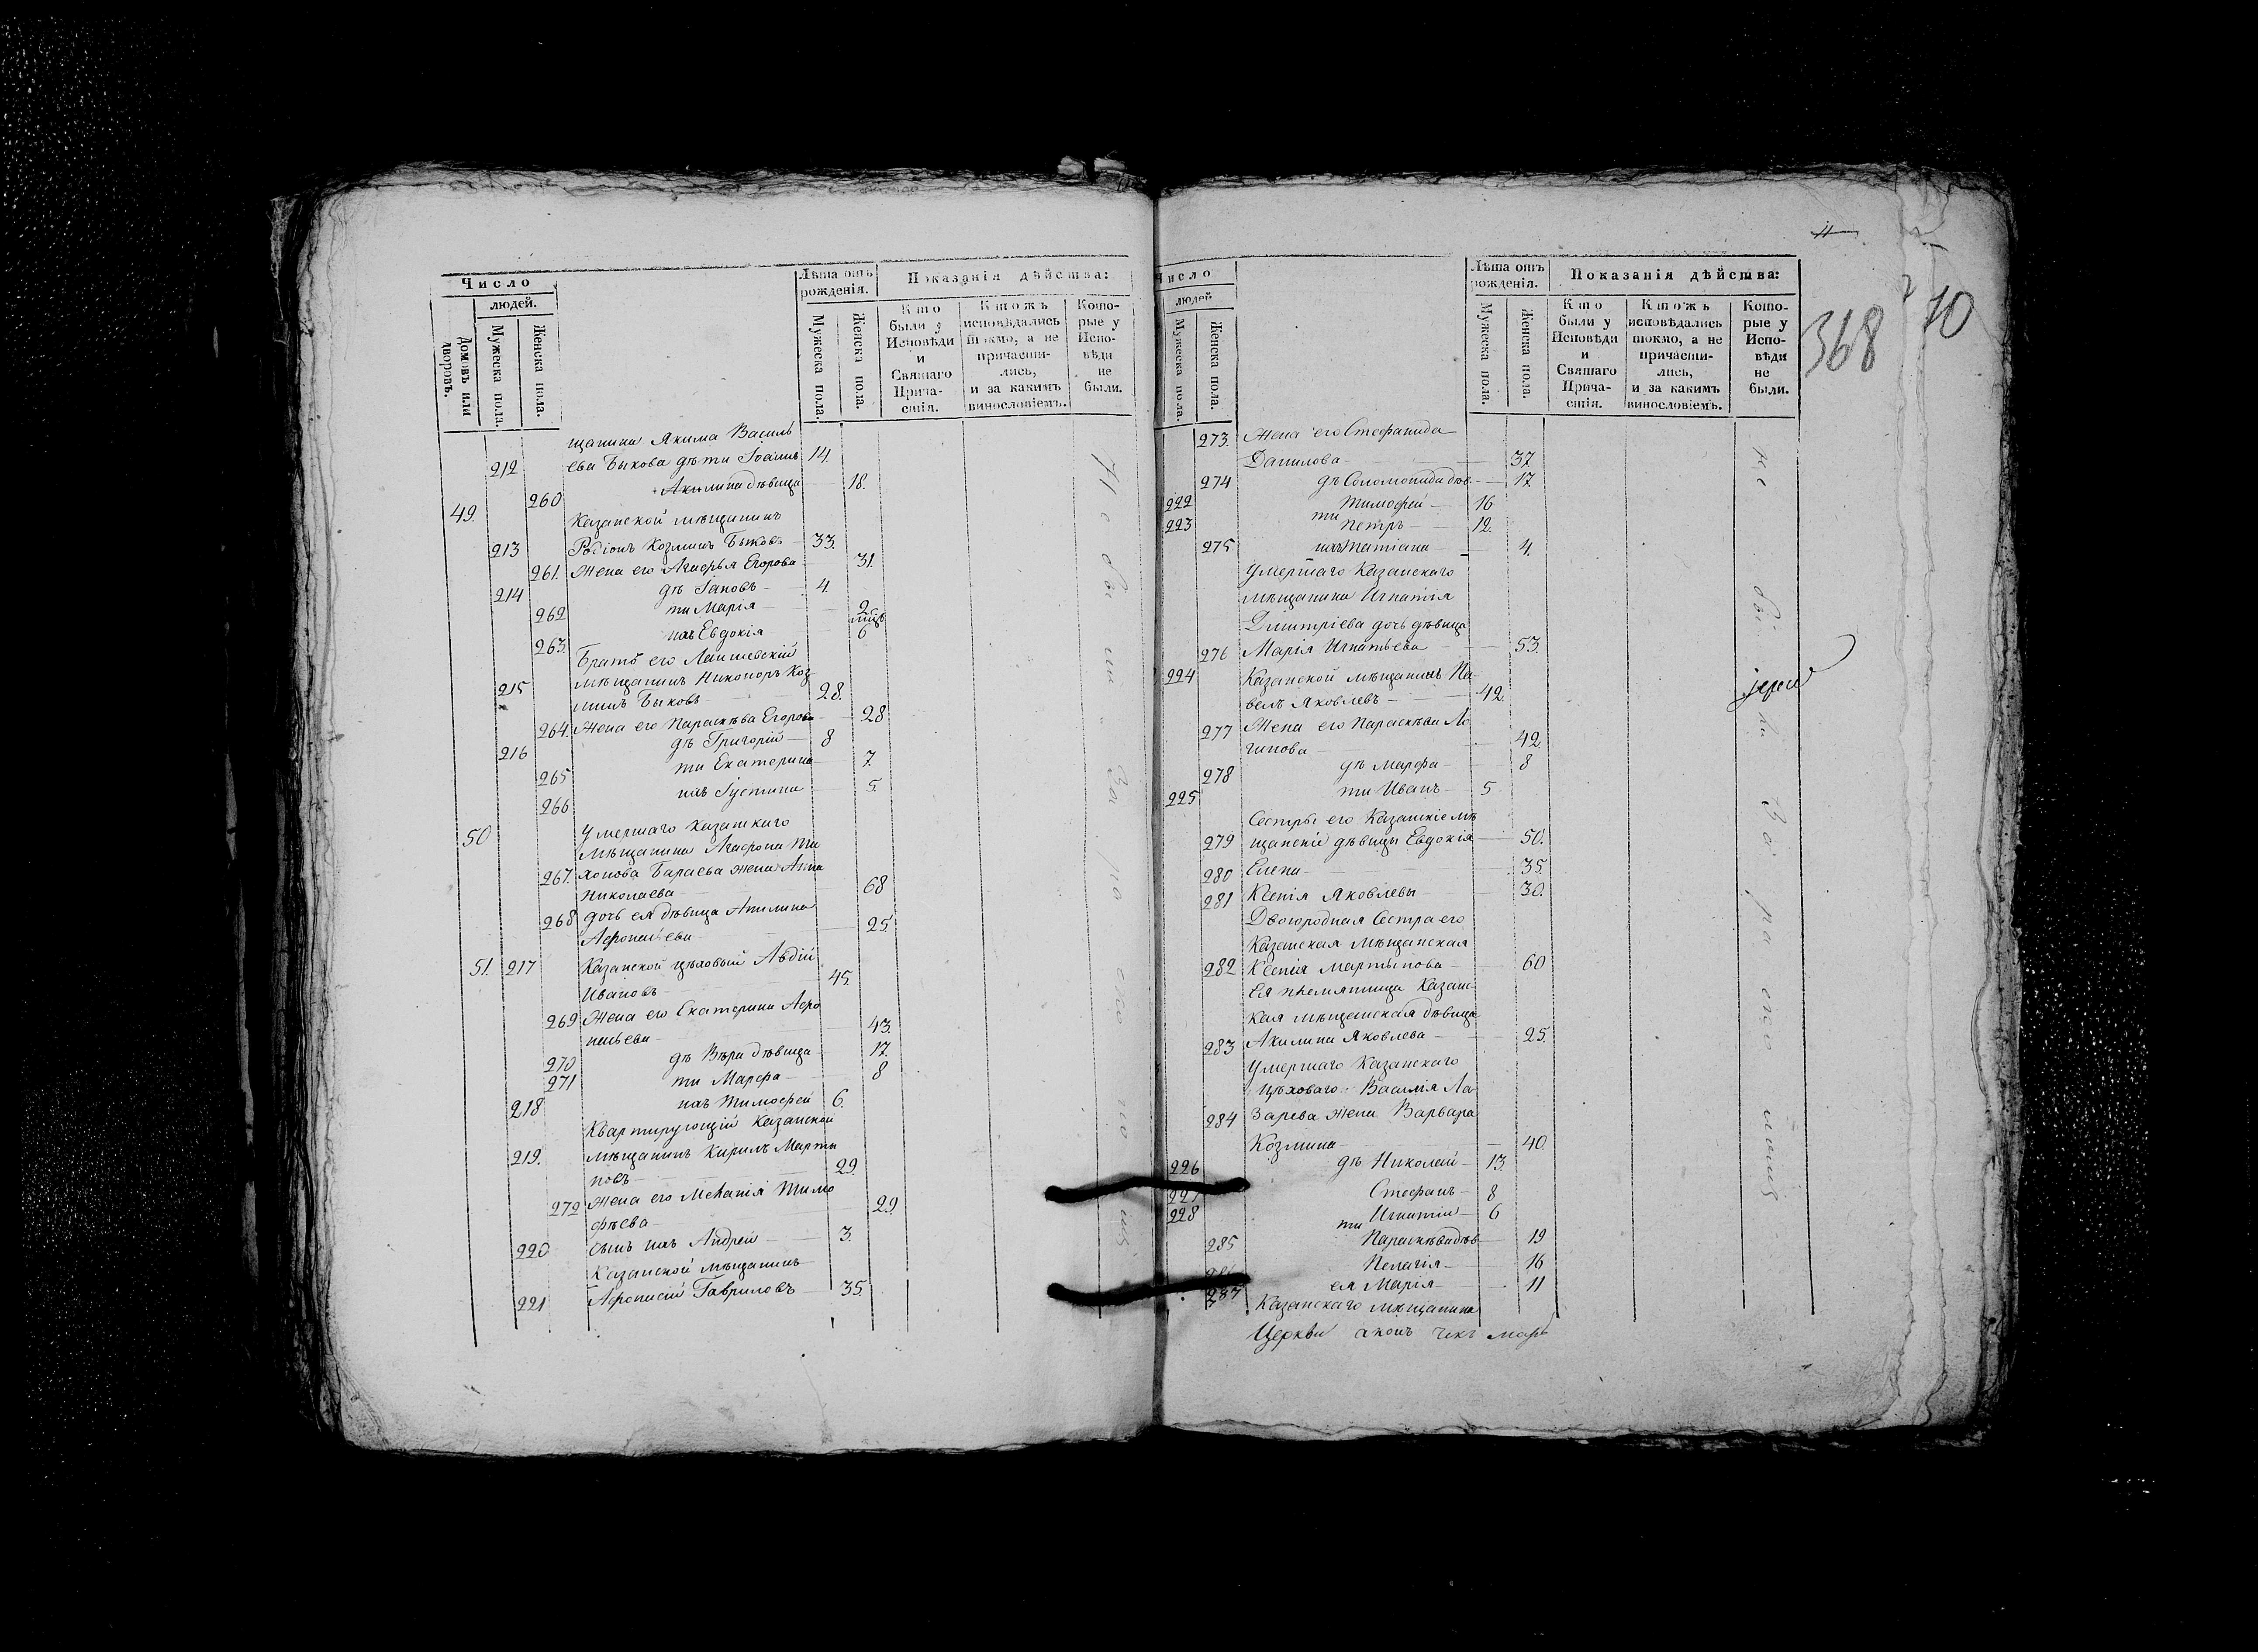 Число
людей.
Домовъ или дворовъ.
Мужеска пола.
Женска пола.
Лѣта отъ рожденія.
Мужеска пола.
Женска пола.
Показанія дѣйства:
Кто были у Исповѣди и Святаго Прича-стія.
Ктожъ исповѣдались токмо, а не причасти-лись, и за какимъ винословіемъ.
Кото-рые у Испо-вѣди не были.
щанина Якима Василь
212 ева Быкова дѣти Іоаннъ 14.
260 Акилина дѣвица 18.
49. Казанской мѣщанинъ
213 Родіонъ Козминъ Быковъ 33.
261. Жена его Агафья Егорова 31.
214 дѣ Іаковъ 4.
262 ти Марія 2
мцъ
263. ихъ Евдокія 6
Братъ его Лаишевскій
215 мѣщанинъ Никоноръ Коз
минъ Быковъ 28.
264. Жена его Параскѣва Егорова 28
216 дѣ Григорій 8
265 ти Екатерина 7.
266 ихъ Іустина 5.
50 Умершаго Казанскаго
мѣщанина Агафона Ти
267. хонова Бараева жена Анна
Николаева 68
268 дочь ея дѣвица Акилина
Афонасьева 25
51. 217 Казанской цѣховый Авдій
Ивановъ 45.
269 Жена его Екатерина Афо
насьева 43.
270 дѣ Вѣра дѣвица 17.
271 ти Марфа 8
218 ихъ Тимофей 6.
Квартирующій Казанской
219. мѣщанинъ Кирилъ Марты
новъ 29.
272 Жена его Меланія Тимо
фѣева 29.
220 сынъ ихъ Андрей 3.
Казанской мѣщанинъ
221 Афонасій Гавриловъ 35.
11
368
10
Число
людей
Мужеска пола.
Женска пола.
Лѣта отъ рожденія.
Мужеска пола.
Женска пола.
Показанія дѣйства:
Кто были у Исповѣди и Святаго Прича-стія.
Ктожъ исповѣдались токмо, а не причасти-лись, и за какимъ винословіемъ.
Кото-рые у Испо-вѣди не были.
273. Жена его Стефанида
Данилова 37.
274 дѣ Соломонида дѣв. 17.
222 Тимофей 16
223 ти Петръ 12.
275 ихъ Татіана 4.
Умершаго Казанскаго
мѣщанина Игнатія
Дмитріева дочь дѣвица
276 Марія Игнатьева 53.
224 Казанской мѣщанинъ Па
велъ Яковлевъ 42.
277 Жена его Параскѣва Ло
гинова 42.
278 дѣ Марфа 8
225 ти Иванъ 5
Сестры его Казанкіе мѣ
279 щанскіе дѣвицы Евдокія 50.
280 Елена 35.
281 Ксенія Яковлевы 30.
Двогородная Сестра его
Казанская мѣщанская
282 Ксенія Мартынова 60
Ея племянница Казанс
кая мѣщанская дѣвица
283 Акилина Яковлева 25.
Умершаго Казанскаго
цѣховаго Василія Ла
284 зарева жена Варвара
Козмина 40.
226 дѣ Николай 13.
227 Стефанъ 8
228 ти Игнатій 6
285 Параскѣва дѣв 19
Пелагія 16
287 ея Марія 11
Казанскаго мѣщанина
Церкви
Іерей